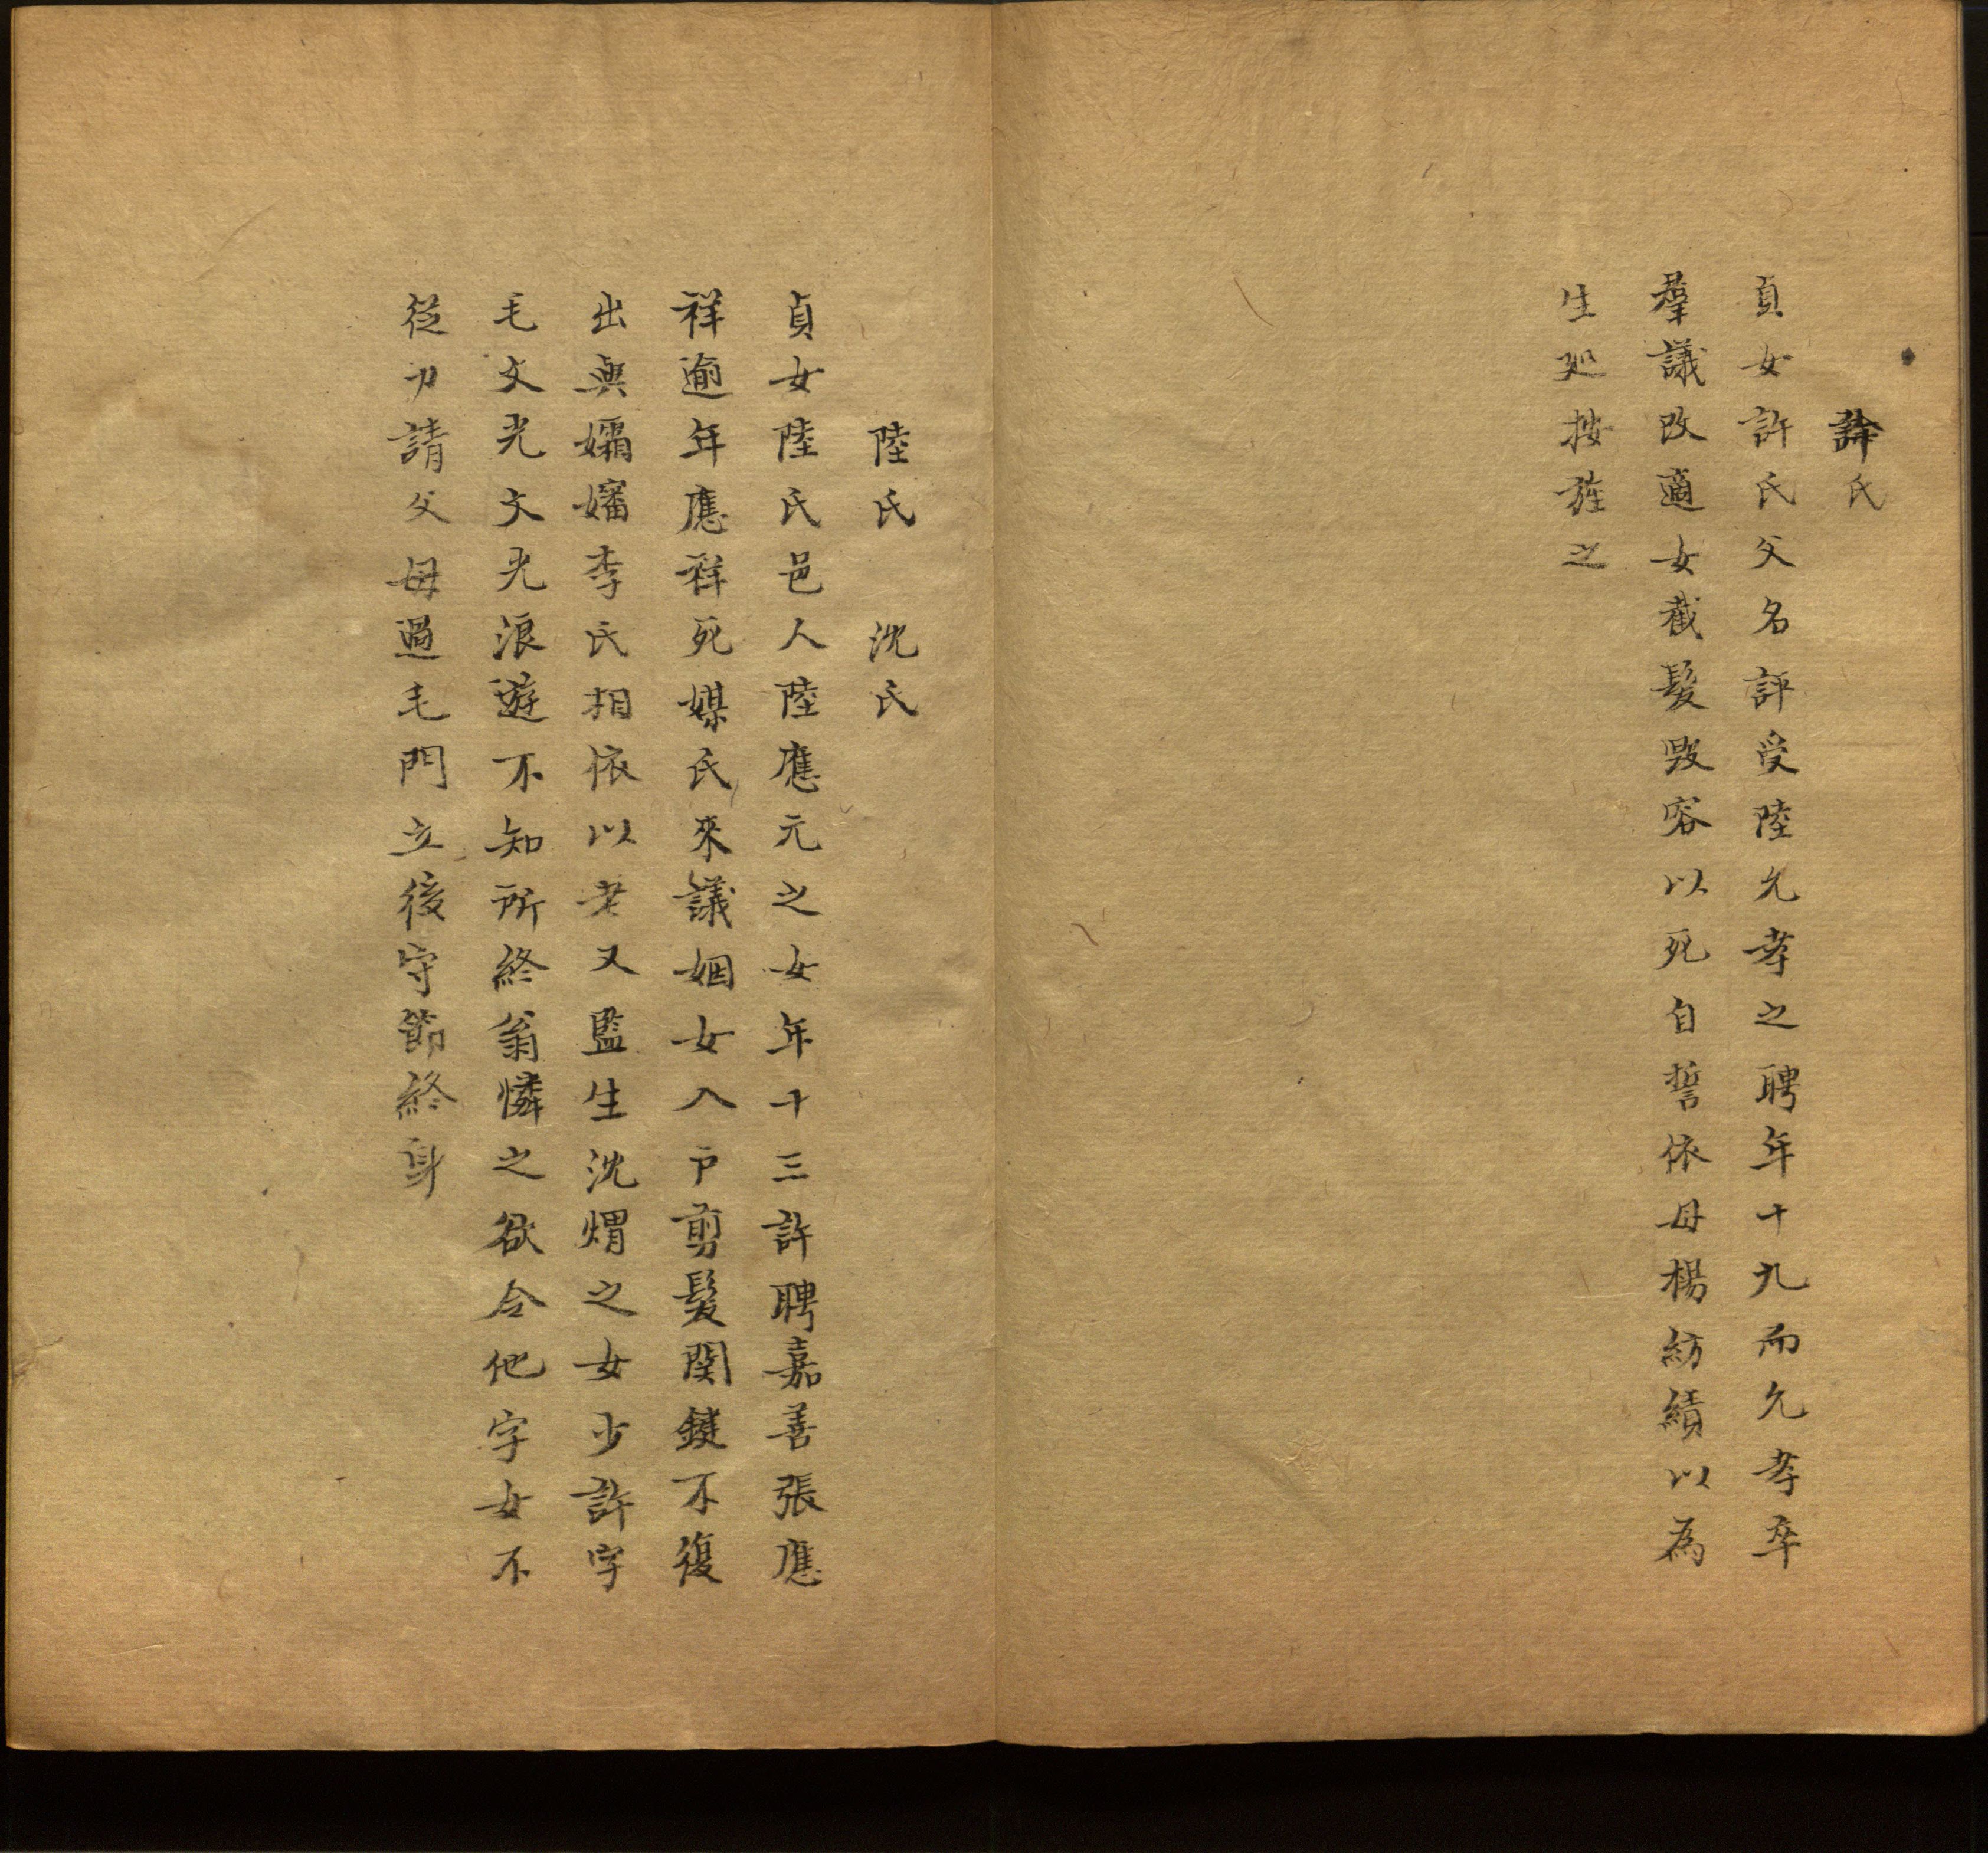 許氏
貞女許氏父名評受陸允孝之聘年十九而允孝卒
羣議改適女截髮毀容以死自誓依母楊紡績以為
生廵按旌之
陸氏　沈氏
貞女陸氏邑人陸應元之女年十三許聘嘉善張應
祥逾年應祥死媒氏來議姻女入戶剪髮関鍵不復
出與孀嬸李氏相依以老又監生沈煟之女少許字
毛文光文光浪遊不知所終翁憐之欲令他字女不
從力請父母過毛門立後守節終身